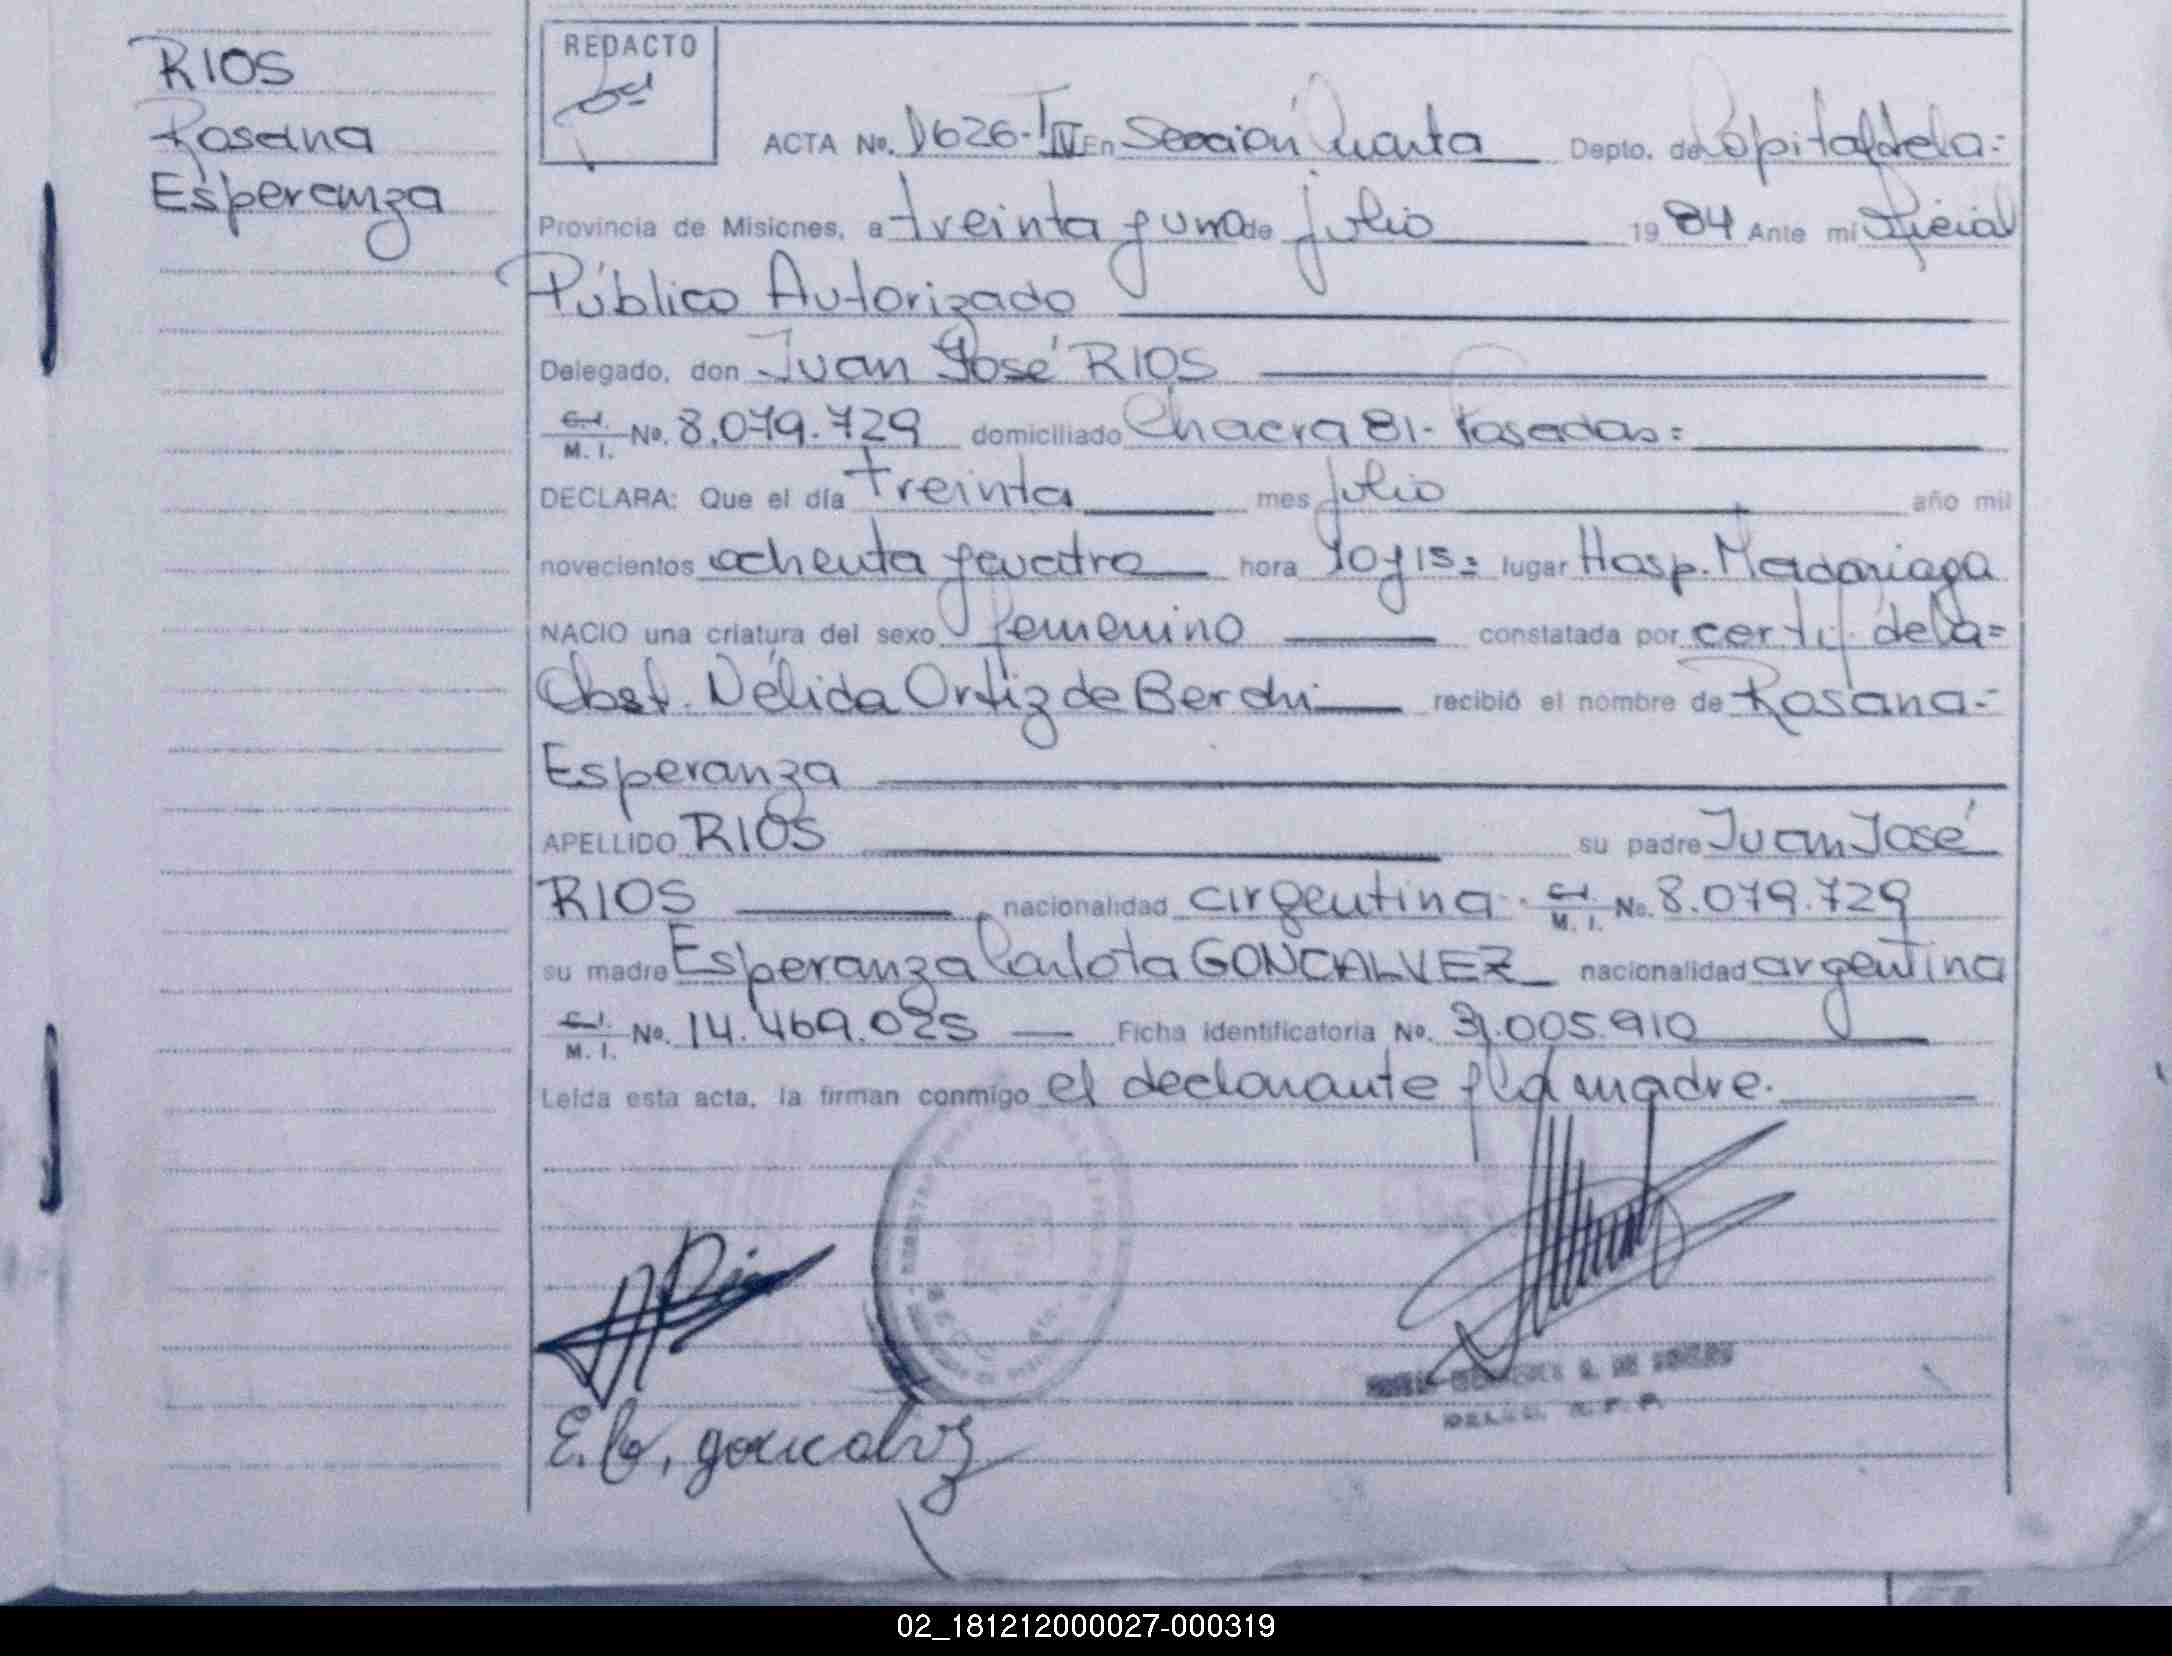 RIOS
Rosana
Esperanza
REDACTO
ACTA No. 1626-IV En Sección Cuarta Depto. de Capital de la=
Provincia de Misiones, a treinta y uno de julio 1984 Ante mi Oficial
Público Autorizado
Delegado, don Juan José RIOS
C.I. M.I. No. 8.079.729 domiciliado Chacra 81- Posadas=
DECLARA: Que el día treinta mes julio año mil
novecientos ochenta y cuatro hora 10 y 15= lugar Hosp. Madariaga
NACIO una criatura del sexo femenino constatada por certif. de la=
Obst. Nélida Ortiz de Berchi recibió el nombre de Rosana-
Esperanza
APELLIDO RIOS su padre Juan José
RIOS, nacionalidad argentina. C.I. M.I. No. 8.079.729
su madre Esperanza Carlota GONCALVEZ nacionalidad argentina
C.I. M.I. No. 14.469.025 Ficha identificatoria No. 31.005.910
Leída esta acta, la firman conmigo el declarante y la madre.
E. C., goncalvz
02_181212000027-000319